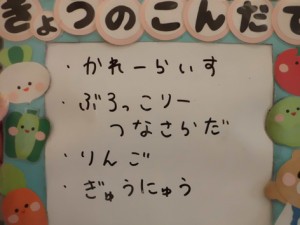 きょうのこんだて
・かれーらいす
・ぶろっこりー
つなさらだ
・りんご
・ぎゅうにゅう